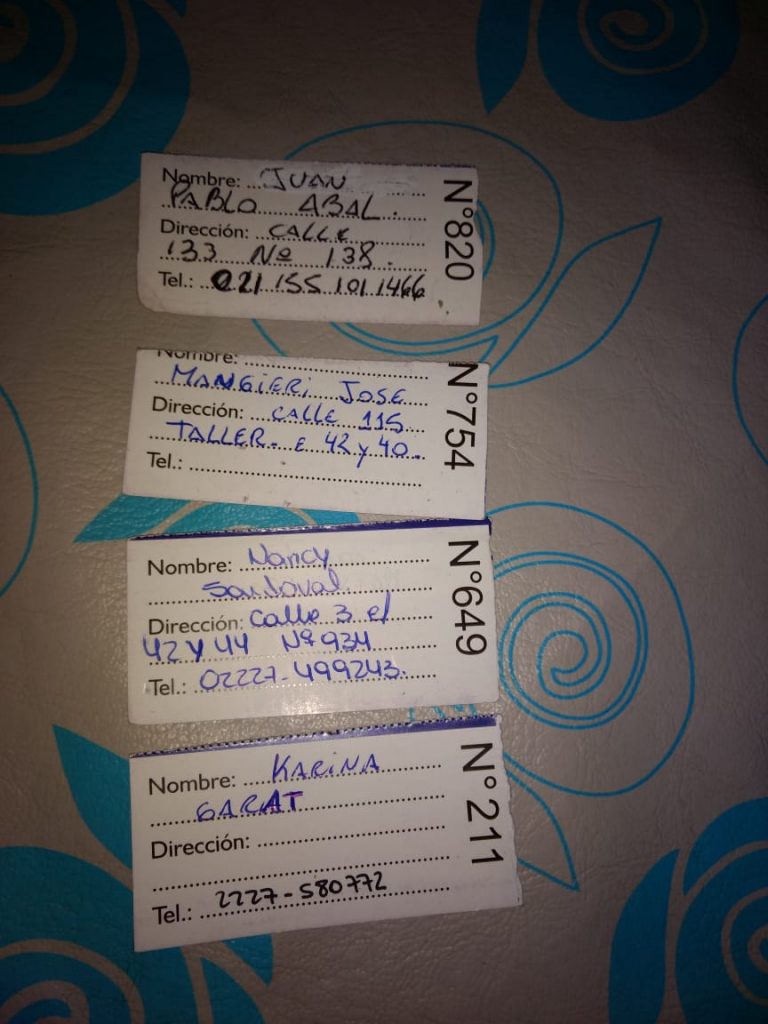 Nombre: JUAN
PABLO ABAL.
Dirección: CALLE
133 Nº 138.
Tel.: 0221 155 101 1466
N°820
Nombre:
MANGIERI JOSE
Dirección: CALLE 115
TALLER- E 42 y 40.
Tel.:
N°754
Nombre: Nancy
Sandoval
Dirección: Calle 3 e/
42 y 44 Nº 934
Tel.: 02227-499243.
N°649
Nombre: KARINA
GARAT
Dirección:
Tel.: 2227-580772
N°211